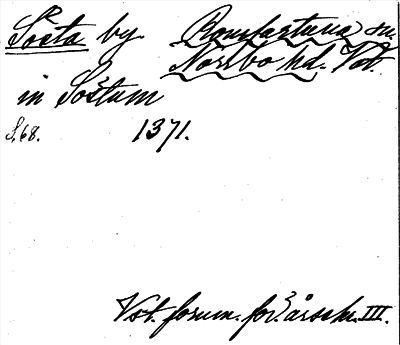 Sösta by. Romfartuna sn.
Norrbo hd. Vst.
in Sostum
S. 68. 1371.
Vst. fornm. för. årsskr. III.